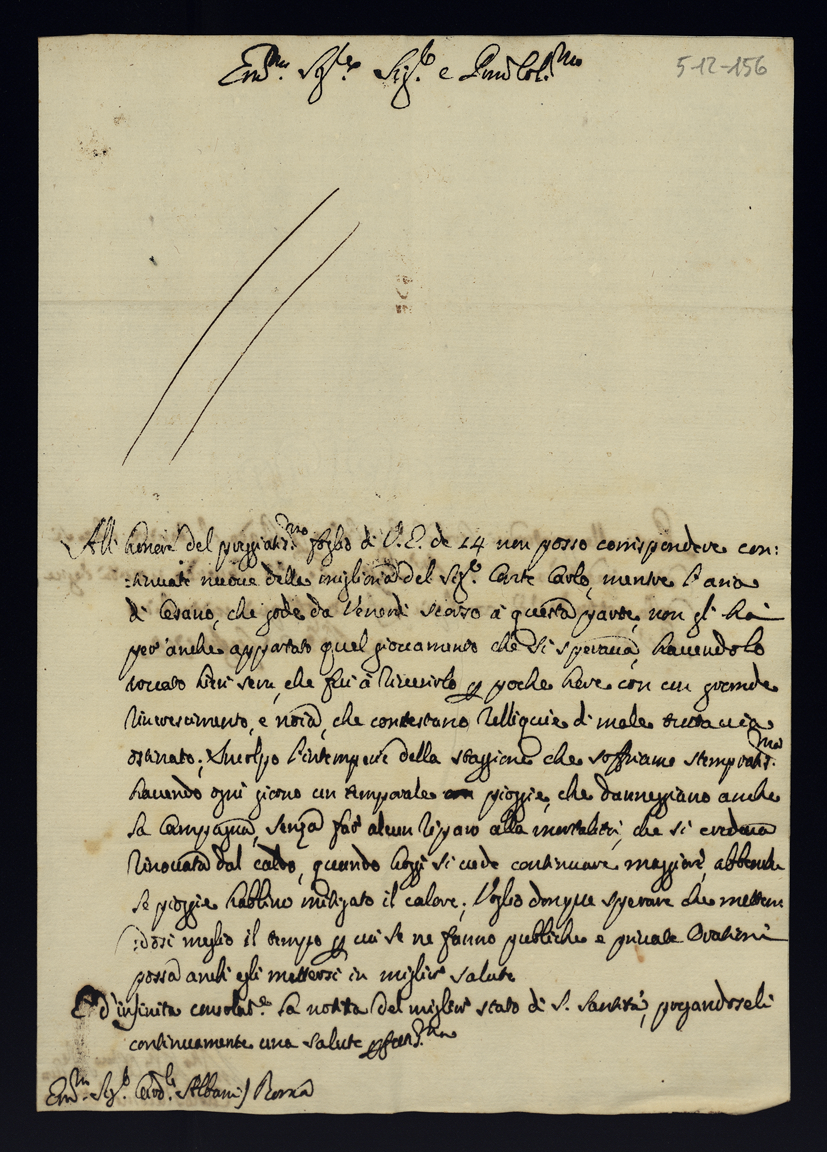 Em.mo Sig.re Sig.r e Pron Col.mo
5-12-156
All' honore del preggiatis.mo foglio di V. E. de 14 non posso corrispondere con:
:tinuate nuove della migliorà del Sig.r Conte Carlo, mentre l'aria
di Cesano, che gode da Venerdi scorso à questa parte, non gli hà
per anche apportato quel giovamento che si sperava, havendolo
trovato hieri sera, che fui à riverirlo p poche hore con un grande
rincrescimento, e noia, che contestano relliquie di male tuttavia
ostinato; Incolpo l'intemperie della staggione che soffriamo stemperatis.ma
havendo ogni giorno un temporale pioggie, che danneggiano anche
la Campagna, senza far alcun riparo alla mortalità, che si credeva
rinovata dal caldo, quando hoggi si vede continuare maggior, abbenche
le pioggie habbino mitigato il calore; Voglio donque sperare che metten
:dosi meglio il tempo p cui se ne fanno publiche e private Orationi
possa anch' egli mettersi in miglior salute
E d'infinita consolat.e la notitia del miglior stato di S. Santità, pregandoseli
continuamente una salute perfettis.ma
Em.mo Sig.r Card.le Albani) Roma